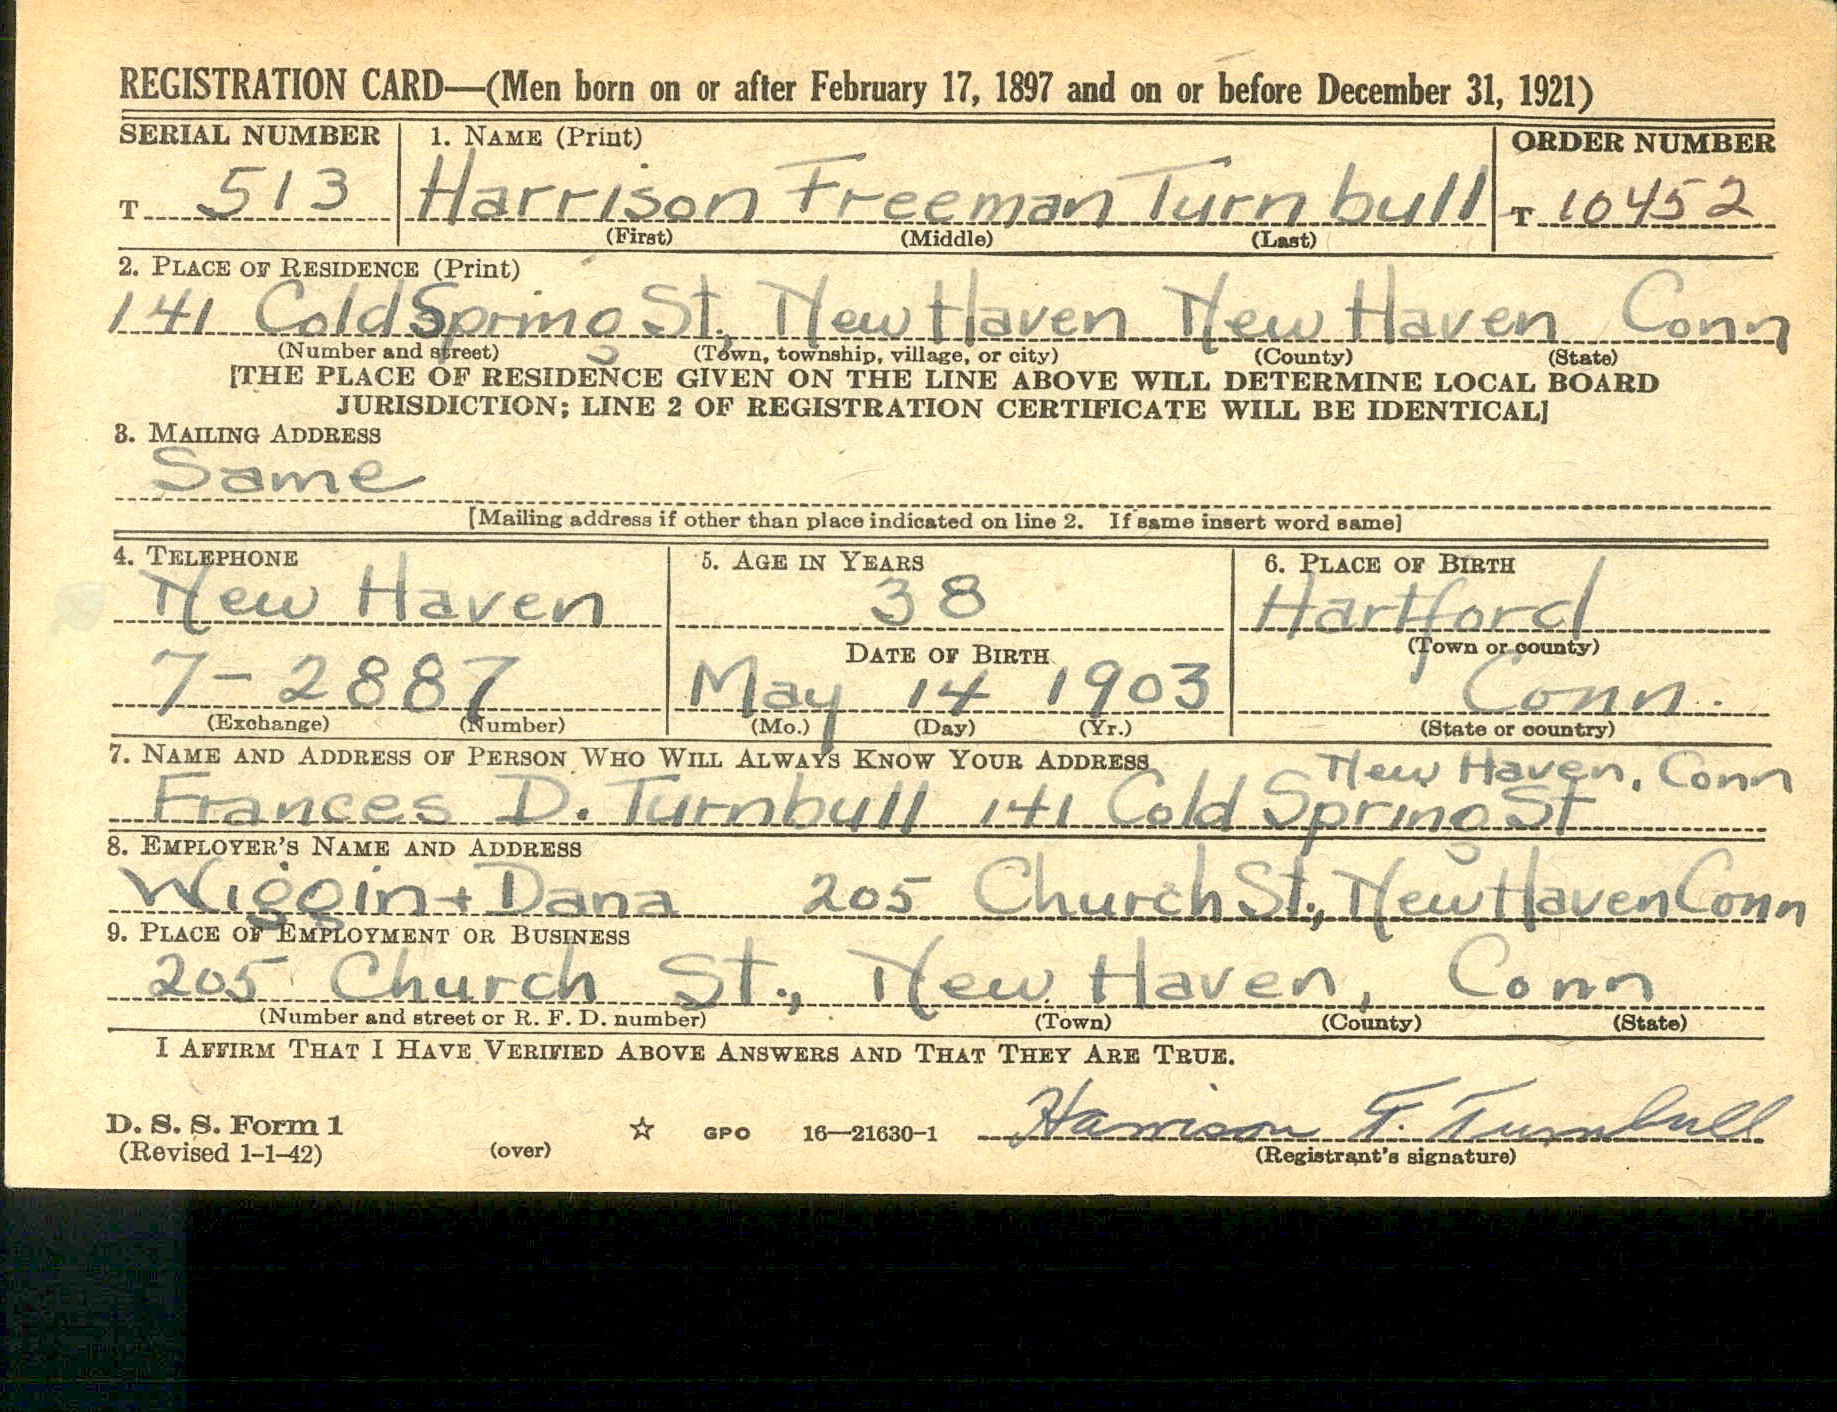 REGISTRATION CARD—(Men born on or after February 17, 1897 and on or before December 31, 1921)
SERIAL NUMBER 1. NAME (Print) ORDER NUMBER
T 513 Harrison Freeman Turnbull T 10452
(First) (Middle) (Last)
2. PLACE OF RESIDENCE (Print)
141 Cold Spring St., New Haven New Haven Conn
(Number and street) (Town, township, village, or city) (County) (State)
[THE PLACE OF RESIDENCE GIVEN ON THE LINE ABOVE WILL DETERMINE LOCAL BOARD
JURISDICTION; LINE 2 OF REGISTRATION CERTIFICATE WILL BE IDENTICAL]
3. MAILING ADDRESS
Same
[Mailing address if other than place indicated on line 2. If same insert word same]
4. TELEPHONE 5. AGE IN YEARS 6. PLACE OF BIRTH
New Haven 38 Hartford
DATE OF BIRTH (Town or county)
7-2887 May 14 1903 Conn.
(Exchange) (Number) (Mo.) (Day) (Yr.) (State or country)
7. NAME AND ADDRESS OF PERSON WHO WILL ALWAYS KNOW YOUR ADDRESS New Haven, Conn
Frances D. Turnbull 141 Cold Spring St
8. EMPLOYER'S NAME AND ADDRESS
Wiggin + Dana 205 Church St., New Haven Conn
9. PLACE OF EMPLOYMENT OR BUSINESS
205 Church St., New Haven, Conn
(Number and street or R. F. D. number) (Town) (County) (State)
I AFFIRM THAT I HAVE VERIFIED ABOVE ANSWERS AND THAT THEY ARE TRUE.
D. S. S. Form 1 ☆ GPO 16—21630-1 Harrison F. Turnbull
(Revised 1-1-42) (over) (Registrant's signature)